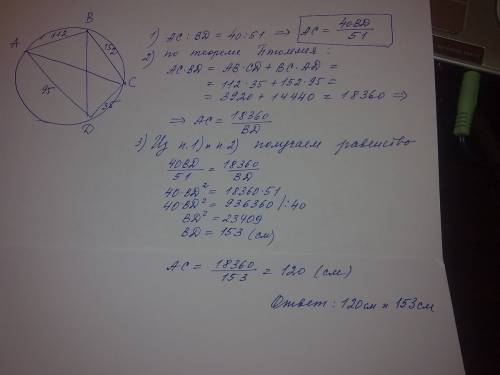 B
A
112
152
C
95
35
D
1) AC : BD = 40 : 51 ⇒ AC = 40BD/51
2) по теореме Птолемея:
AC·BD = AB·CD + BC·AD =
= 112·35 + 152·95 =
= 3920 + 14440 = 18360 ⇒
⇒ AC = 18360/BD
3) Из п.1) и п.2) получаем равенство
40BD/51 = 18360/BD
40·BD² = 18360·51
40BD² = 936360 /:40
BD² = 23409
BD = 153 (см)
AC = 18360/153 = 120 (см)
Ответ: 120см и 153см